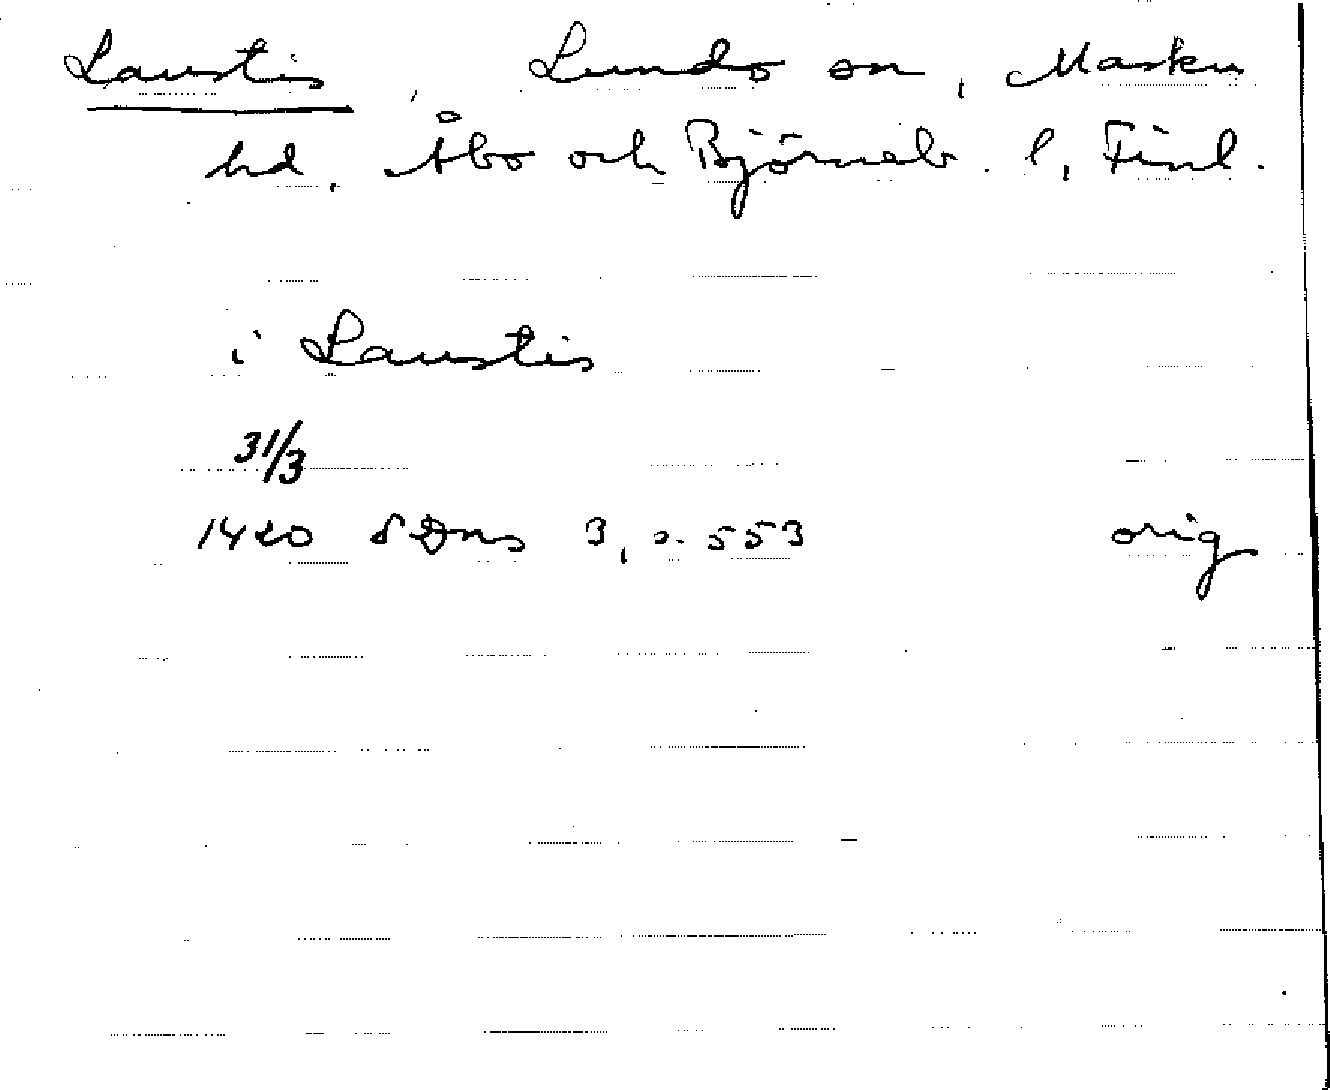 Laustis, Lundo sn, Masku
hd, Åbo och Björneb. l, Finl.
i Laustis
31/3
1420 SDns 3, s. 553 orig